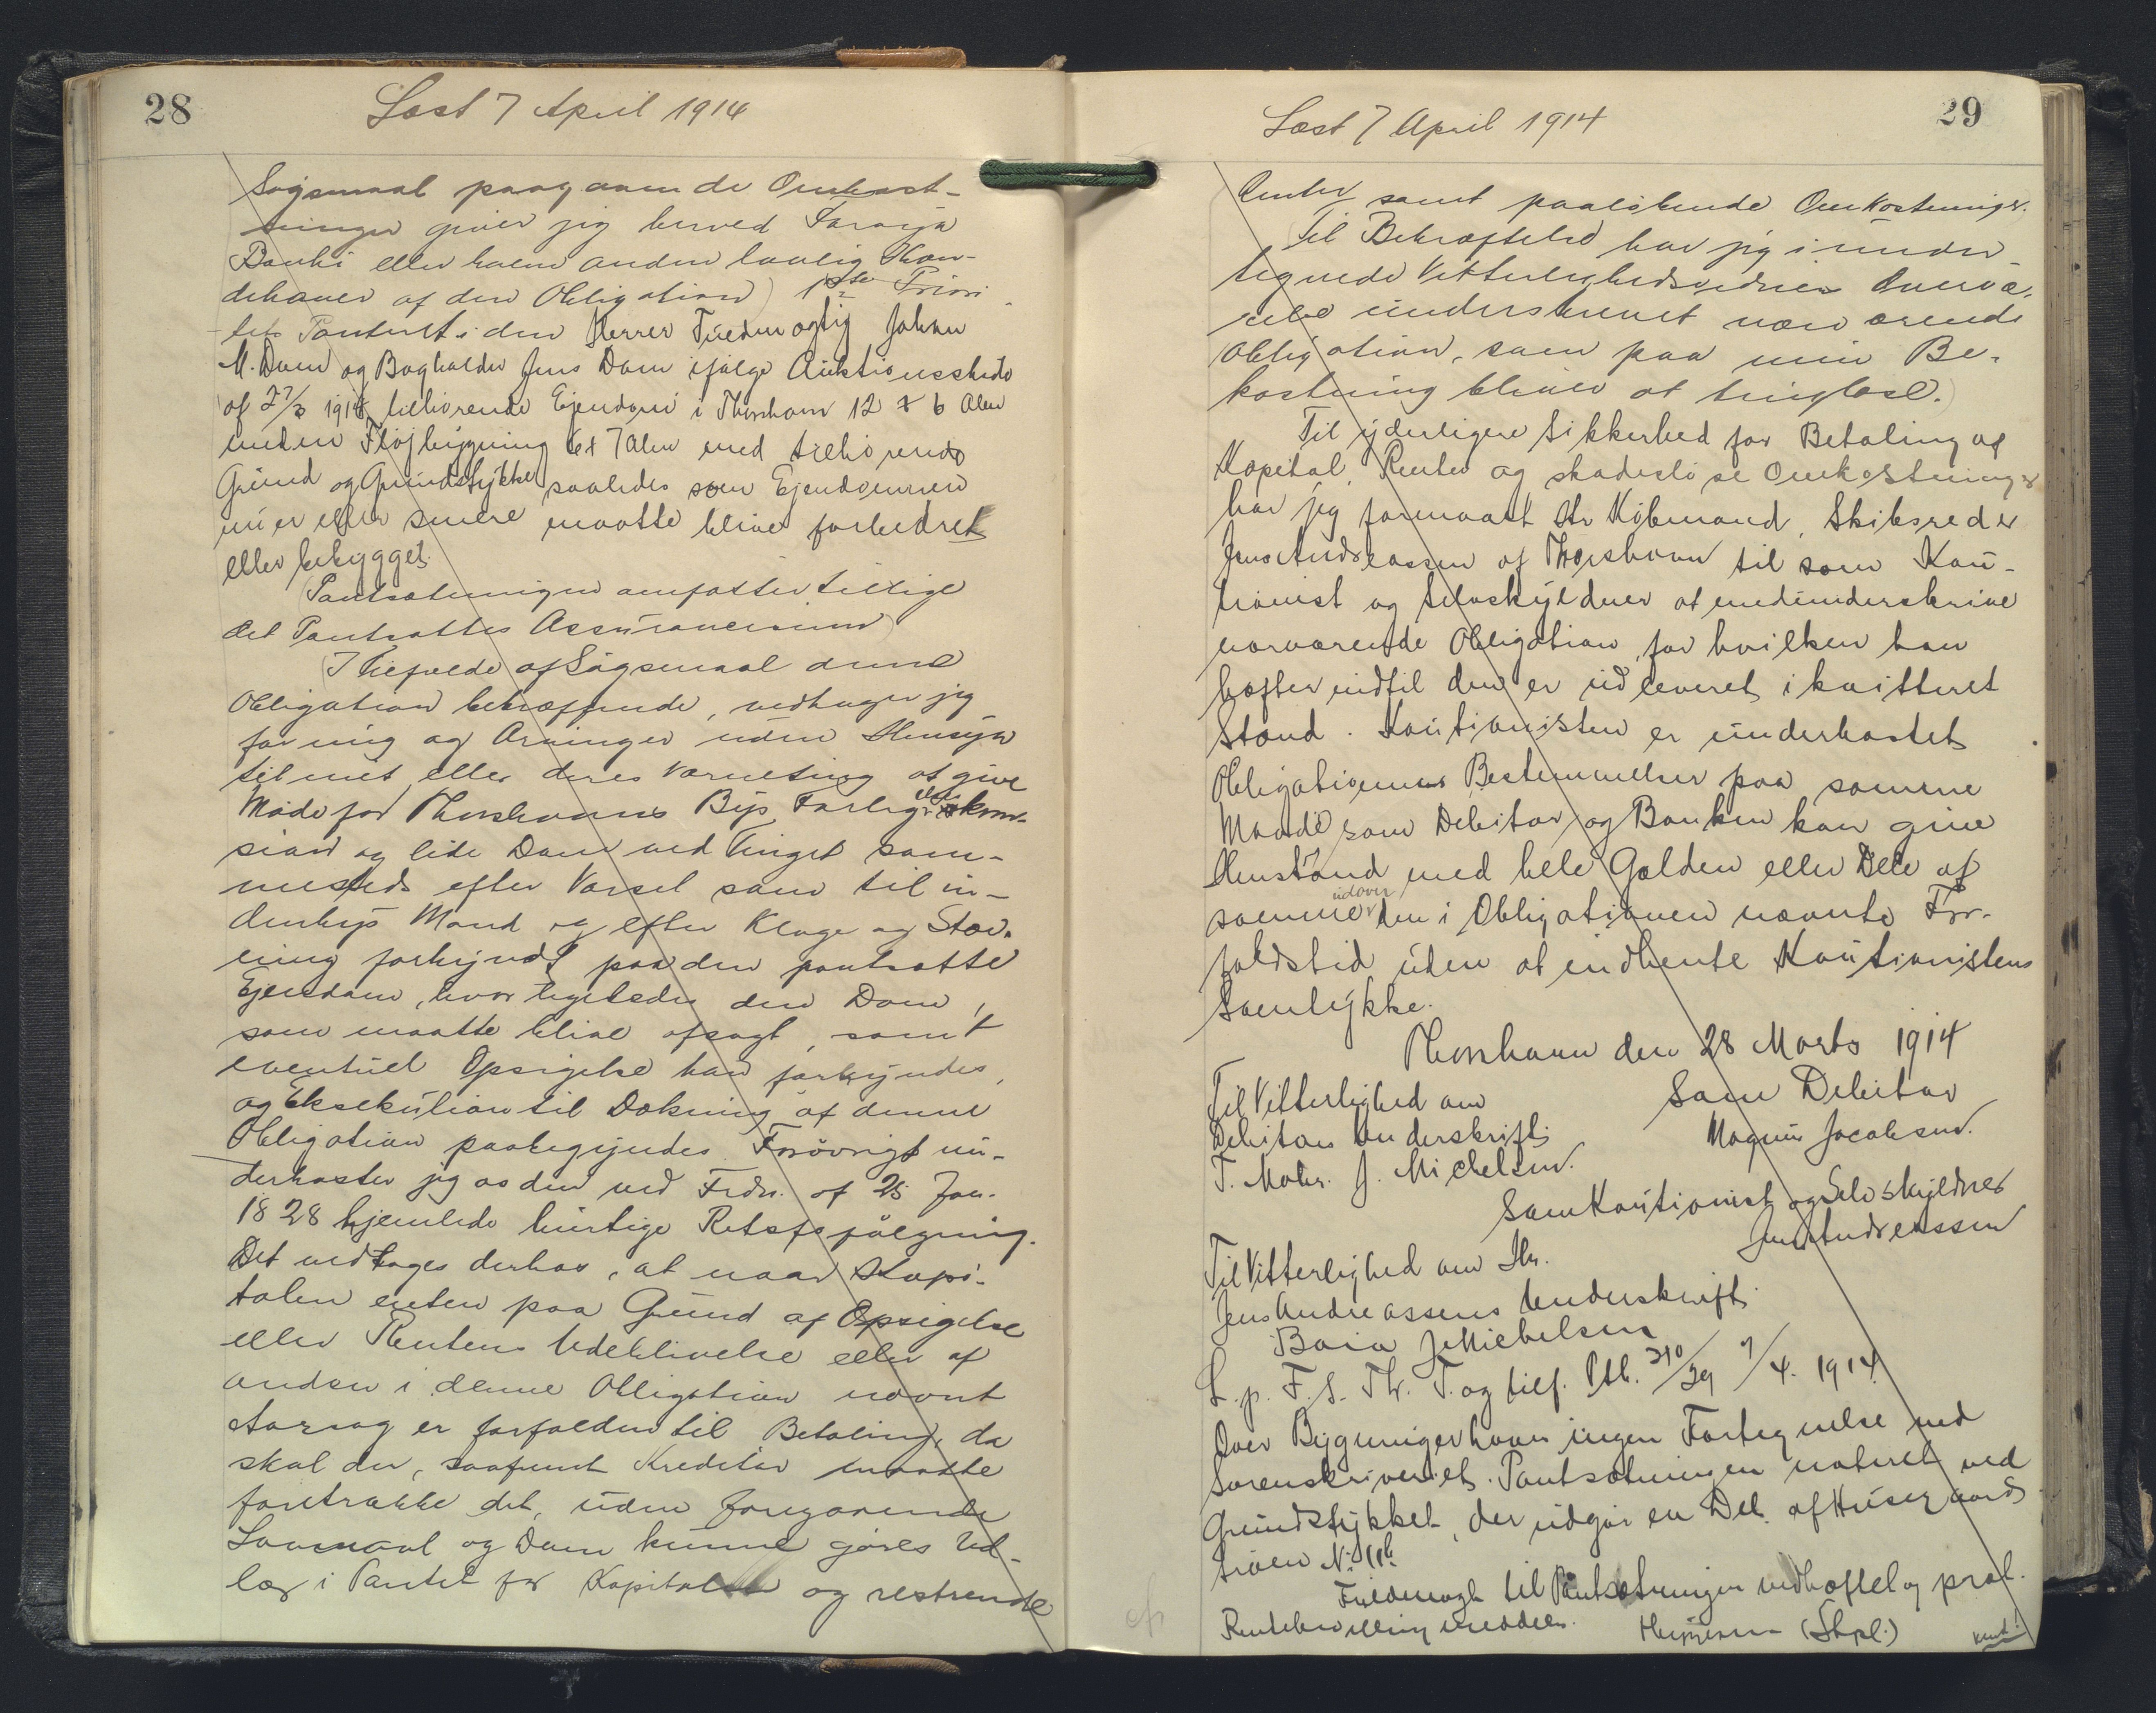 28
Læst 7 April 1914
Søgsmaal paagaaende Omkost-
ninger giver jeg herved Føroya
Banki eller hvem anden lovlig Ihæn-
dehaver af den Obligation) 1ste Priori-
tets Panteret i den Herrer Fuldmægtig Johan
M. Dam og Bogholder Jens Dam ifølge Auktionsskøde
af 27/3 1914 tilhørende Ejendom i Thorshavn 12 x 6 Alen
inden Fløjbygning 6x7 Alen med tilhørende
Grund og Grundstykke saaledes som Ejendommen
nu er eller senere maatte blive forbedret
eller bebygget.
(Pantsætningen omfatter tillige
det Pantsattes Assurancesum)
I Tilfælde af Søgsmaal denne
Obligation betræffende, vedtager jeg
for mig og Arvinger uden Hensyn
til mit eller deres Værneting at give
Møde for Thorshavns Bys Forligelseskom-
sion og lide Dom ved Tinget sam-
mesteds efter Varsel som til in-
denbys Mand og efter Klage og Stæv-
ning forkyndt paa den pantsatte
Ejendom, hvor ligeledes den Dom,
som maatte blive afsagt, samt
eventuel Opsigelse kan forkyndes,
og Eksekution til Dækning af denne
Obligation paabegyndes. Forøvrigt un-
derkaster jeg os den ved Frdn. af 25 Jan.
1828 hjemlede hurtige Retsforfølgning.
Det vedtages derhos, at naar Kapi-
talen enten paa Grund af Opsigelse
eller Rentens Udeblivelse eller af
anden i denne Obligation nævnt
Aarsag er forfalden til Betaling, da
skal der, saafremt Kreditor maatte
foretrække det, uden foregaaende
Lovmaal og Dom kunne gøres Ud-
læg i Pantet for Kapitalen og resterende
29
Læst 7 April 1914
Renter samt paaløbende Omkostninger.
Til Bekræftelse har jeg i under-
tegnede Vitterlighedsvidners Overvæ-
relse underskrevet nærværende
Obligation, som paa min Be-
kostning bliver at tinglæse.)
Til yderligere Sikkerhed for Betaling af
Kapital, Renter og skadesløse Omkostninger
har jeg formaaet Hr Købmand, Skibsreder
Jens Andreassen af Thorshavn til som Kau-
tionist og Selvskyldner at medunderskrive
nærværende Obligation, for hvilken han
hæfter indtil den er udleveret i kvitteret
Stand. Kautionisten er underkastet
Obligationens Bestemmelser paa samme
Maade som Debitor, og Banken kan give
Henstand med hele Gælden eller Dele af
samme udover den i Obligationen nævnte For-
faldstid uden at indhente Kautionistens
Samtykke.
Thorshavn den 28 Marts 1914
Til Vitterlighed om
Som Debitor
Debitors Underskrift:
Magnus Jacobsen.
T. Mohr. J. Michelsen.
Som Kautionist og Selvskyldner
Jens Andreassen
Til Vitterlighed om Hr.
Jens Andreassens Underskrift.
J Michelsen
L. p. F. S. Th. T. og tilf. Ptb. 310/29 7/4. 1914
Over Bygninger haves ingen Fortegnelse ved
Sorenskriveriet. Pantsætningen noteret ved
Grundstykket, der udgør en Del af Husegaards
trøen No 11b
Fuldmagt til Pantsætningen vedhæftet og prot.
Rentebevilling meddelt. (Stpl.)